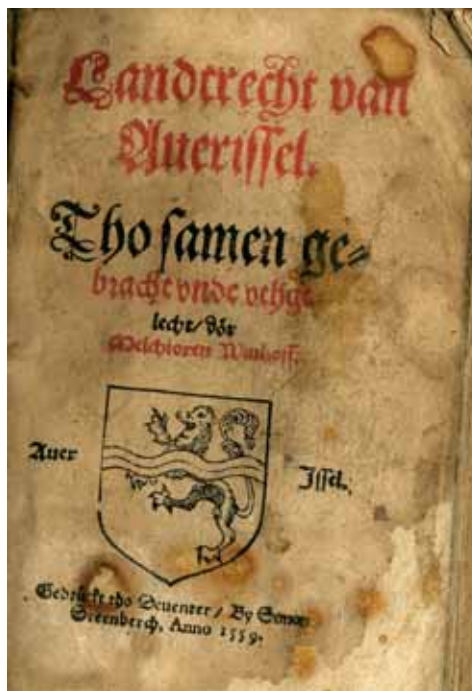 Landtrecht van
Auerissel.
Tho samen ge⸗
bracht vnde vthge
lecht/ dör
Melchioren Winhoff.
Auer
Issel.
Gedrückt tho Deuenter/ By Simon
Steenberch, Anno 1559.